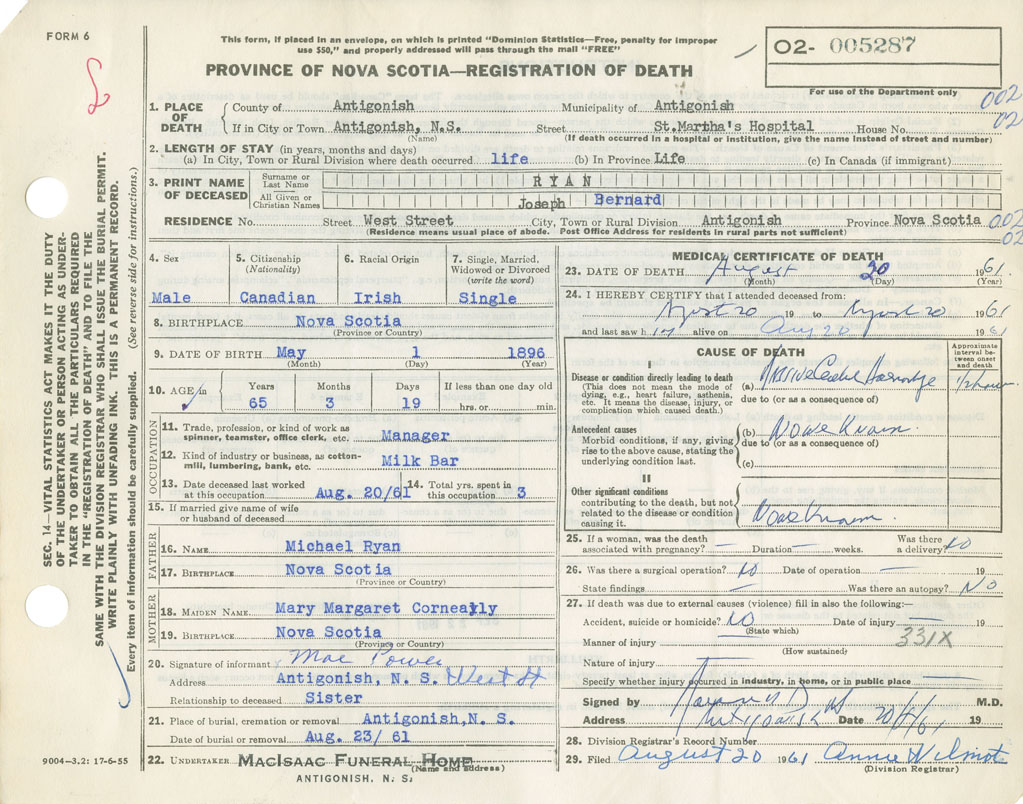 FORM 6
This form, if placed in an envelope, on which is printed "Dominion Statistics—Free, penalty for improper
use $50," and properly addressed will pass through the mail "FREE"
PROVINCE OF NOVA SCOTIA—REGISTRATION OF DEATH
02- 005287
For use of the Department only
002
02
1. PLACE OF DEATH
County of Antigonish Municipality of Antigonish
If in City or Town Antigonish, N.S. Street St.Martha's Hospital House No.
(Name) (If death occurred in a hospital or institution, give the name instead of street and number)
2. LENGTH OF STAY (in years, months and days)
(a) In City, Town or Rural Division where death occurred life (b) In Province Life (c) In Canada (if immigrant)
3. PRINT NAME OF DECEASED
Surname or Last Name RYAN
All Given or Christian Names Joseph Bernard
RESIDENCE No. Street West Street City, Town or Rural Division Antigonish Province Nova Scotia
(Residence means usual place of abode. Post Office Address for residents in rural parts not sufficient)
002
02
4. Sex Male
5. Citizenship (Nationality) Canadian
6. Racial Origin Irish
7. Single, Married, Widowed or Divorced (write the word) Single
8. BIRTHPLACE Nova Scotia
(Province or Country)
9. DATE OF BIRTH May 1 1896
(Month) (Day) (Year)
10. AGE in Years Months Days If less than one day old
65 3 19 hrs. or min.
OCCUPATION
11. Trade, profession, or kind of work as spinner, teamster, office clerk, etc. Manager
12. Kind of industry or business, as cotton-mill, lumbering, bank, etc. Milk Bar
13. Date deceased last worked at this occupation Aug. 20/61
14. Total yrs. spent in this occupation 3
15. If married give name of wife or husband of deceased
FATHER
16. NAME Michael Ryan
17. BIRTHPLACE Nova Scotia
(Province or Country)
MOTHER
18. MAIDEN NAME Mary Margaret
19. BIRTHPLACE Nova Scotia
(Province or Country)
20. Signature of informant Mae Power
Address Antigonish, N. S. West St
Relationship to deceased Sister
21. Place of burial, cremation or removal Antigonish,N. S.
Date of burial or removal Aug. 23/ 61
22. UNDERTAKER MACISAAC FUNERAL HOME
(Name and address)
ANTIGONISH, N. S.
MEDICAL CERTIFICATE OF DEATH
23. DATE OF DEATH August 20 1961
(Month) (Day) (Year)
24. I HEREBY CERTIFY that I attended deceased from:
August 20 19 to August 20 1961
and last saw him alive on Aug 20 1961
CAUSE OF DEATH
Approximate interval between onset and death
I
Disease or condition directly leading to death
(This does not mean the mode of dying, e.g., heart failure, asthenia, etc. It means the disease, injury, or complication which caused death.)
(a) Massive
due to (or as a consequence of)
Antecedent causes
Morbid conditions, if any, giving rise to the above cause, stating the underlying condition last.
(b) None Known
due to (or as a consequence of)
(c)
II
Other significant conditions
contributing to the death, but not related to the disease or condition causing it.
None Known
25. If a woman, was the death associated with pregnancy? — Duration — weeks. Was there a delivery? No
26. Was there a surgical operation? No Date of operation — 19
State findings Was there an autopsy? No
27. If death was due to external causes (violence) fill in also the following:—
Accident, suicide or homicide? No Date of injury — 19
(State which)
331X
Manner of injury
(How sustained)
Nature of injury
Specify whether injury occurred in industry, in home, or in public place
Signed by M.D.
Address Antigonish NS Date 20/8/61 19
28. Division Registrar's Record Number
29. Filed August 20 1961 Annie Wilmot
(Division Registrar)
SEC. 14—VITAL STATISTICS ACT MAKES IT THE DUTY
OF THE UNDERTAKER OR PERSON ACTING AS UNDER-
TAKER TO OBTAIN ALL THE PARTICULARS REQUIRED
IN THE "REGISTRATION OF DEATH" AND TO FILE THE
SAME WITH THE DIVISION REGISTRAR WHO SHALL ISSUE THE BURIAL PERMIT.
WRITE PLAINLY WITH UNFADING INK. THIS IS A PERMANENT RECORD.
Every item of information should be carefully supplied. (See reverse side for instructions.)
9004-3.2: 17-6-55